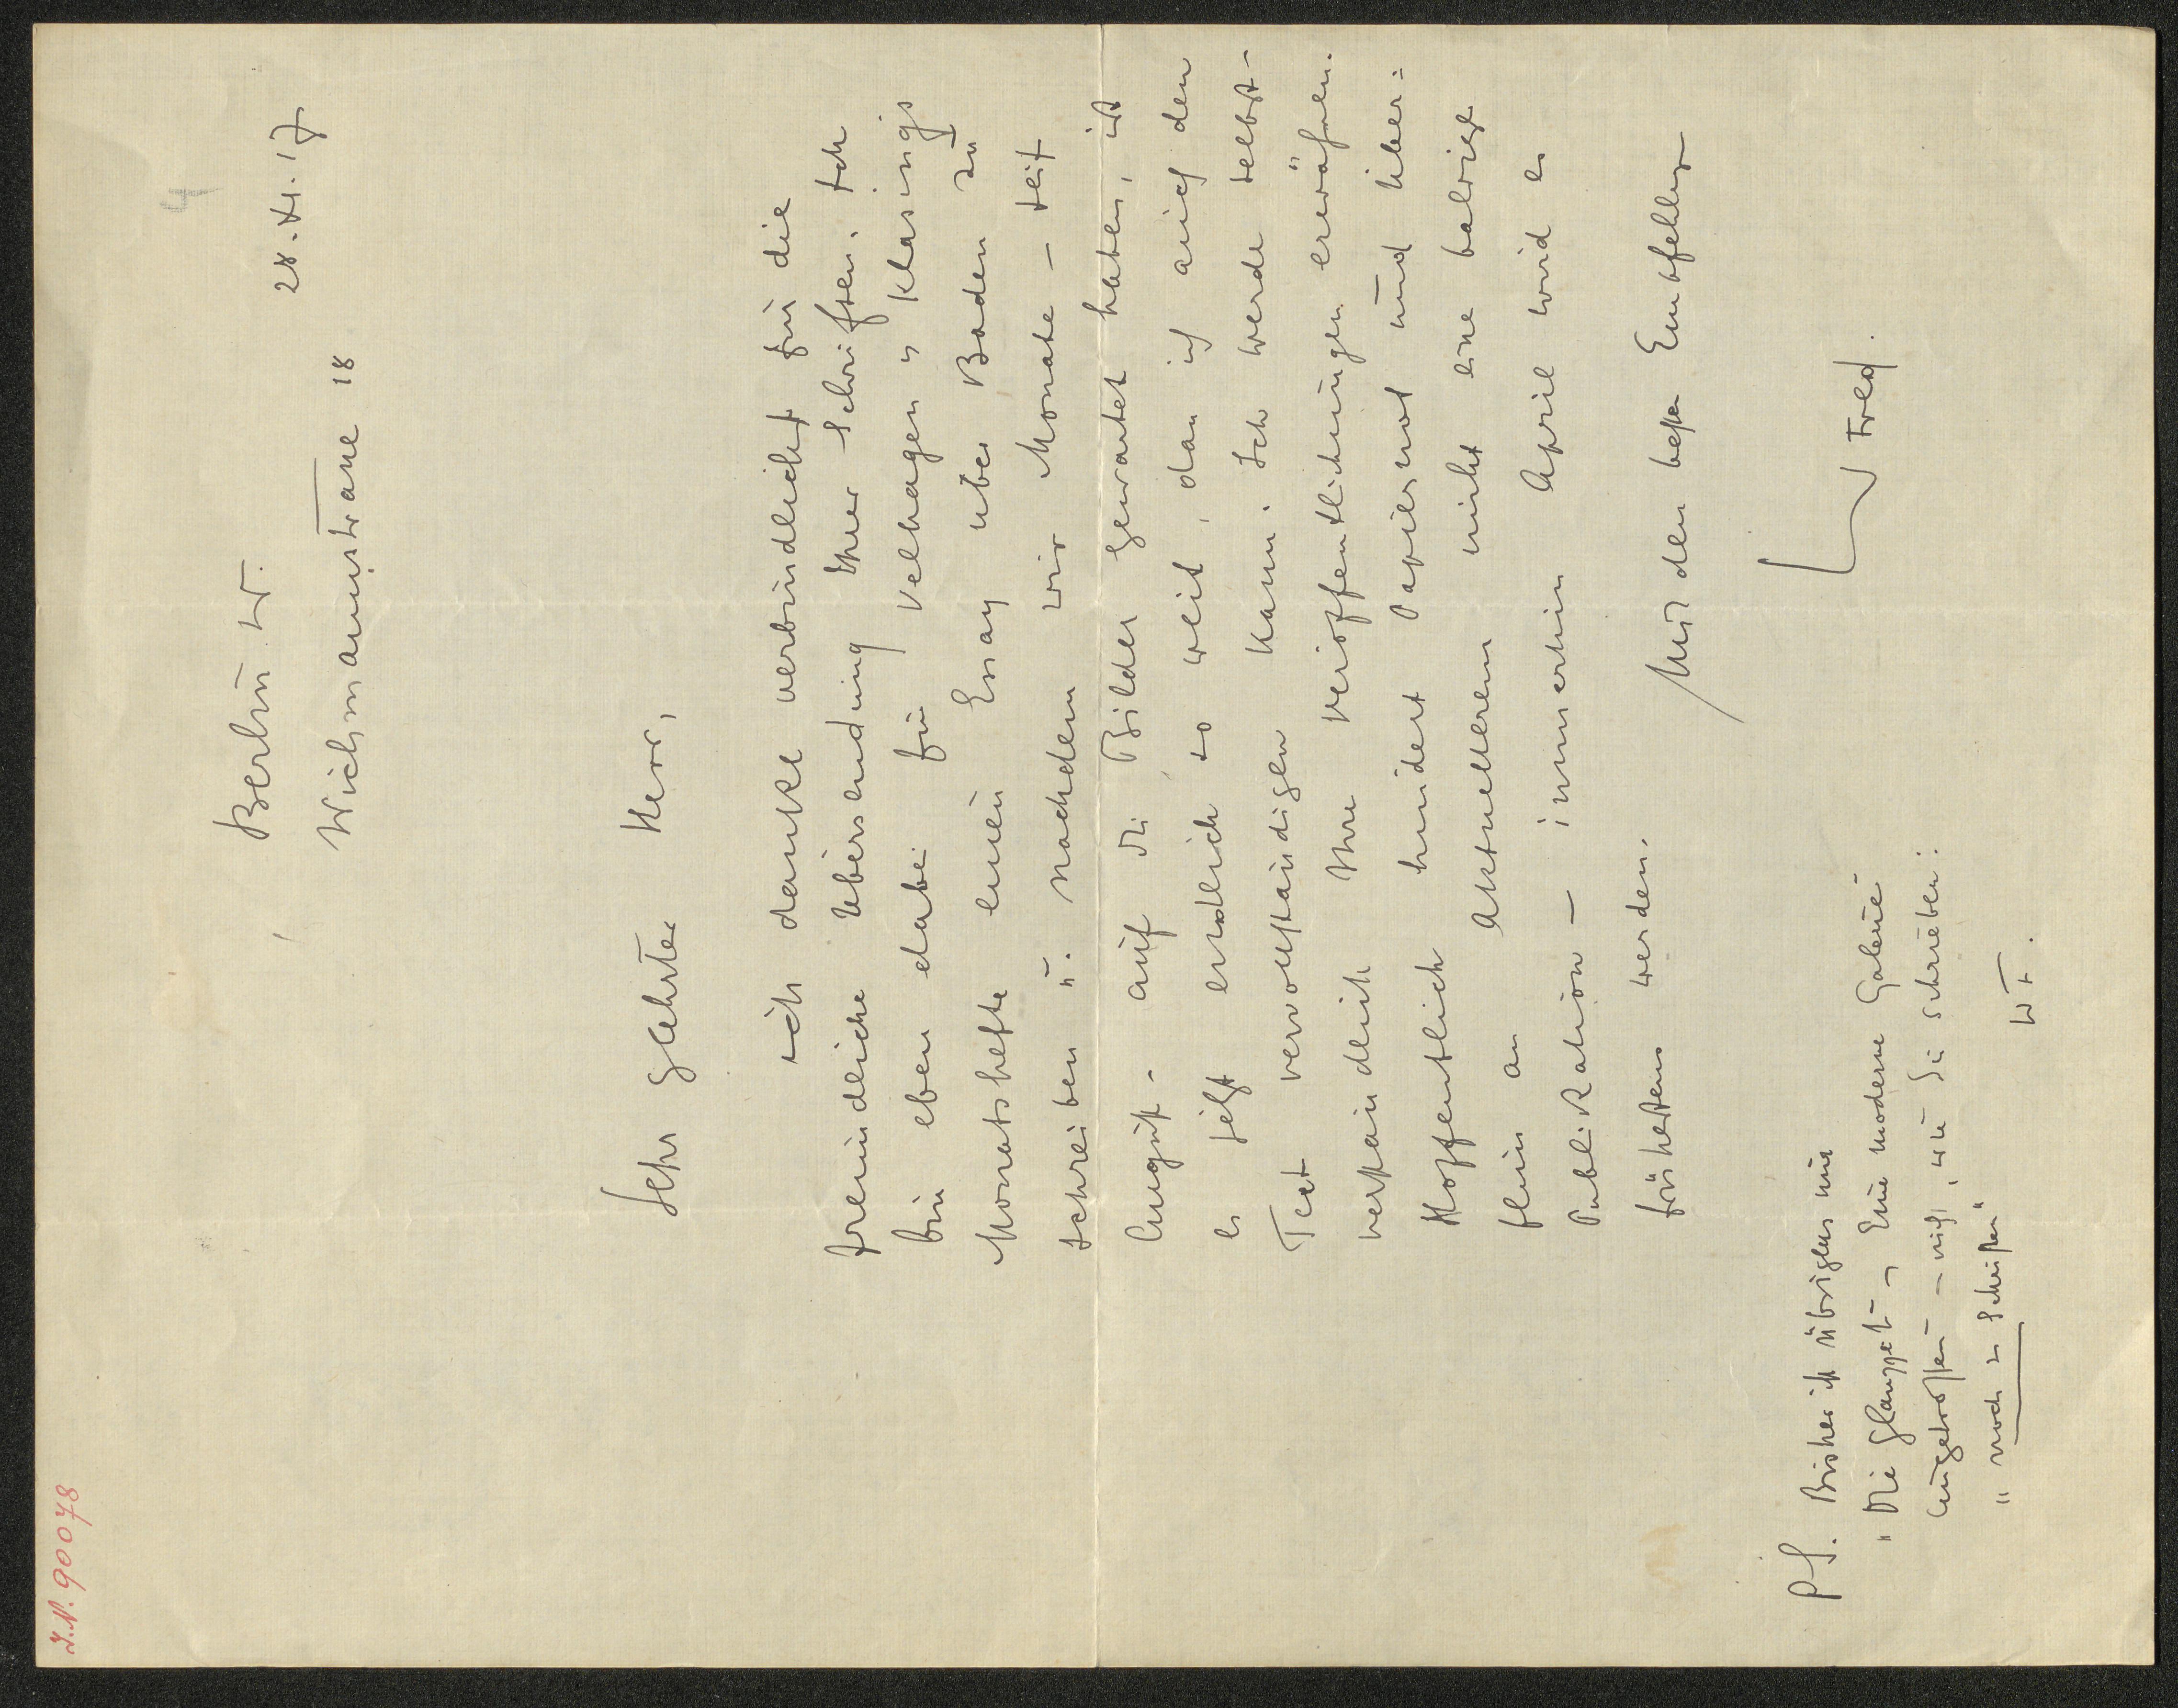 I.N. 90078
4
Berlin W.
Wichmannstrasse 18
28.XI.17
Sehr geehrter Herr,
ich danke verbindlichst für die
freundliche Übersendung Ihrer Schriften. Ich
bin eben dabei für Velhagen u Klasings
Monatshefte einen Essay über Baden zu
schreiben u. nachdem wir Monate – seit
August – auf die Bilder gewartet haben, ist
es jetzt endlich so weit, dass ich auch den
Text vervollständigen kann. Ich werde selbst-
verständlich Ihre Veröffentlichungen erwähnen.
Hoffentlich hindert Papiernot und über=
fluss an Aktuellerem nicht eine baldige
Publikation – immerhin April wird es
frühestens werden.
Mit den besten Empfehlungen
W Fred.
PS. Bisher ist übrigens nur
"Die Glanzzeit – Eine moderne Galerie"
eingetroffen – nicht, wie Sie schrieben:
"noch 2 Schriften"
WF.